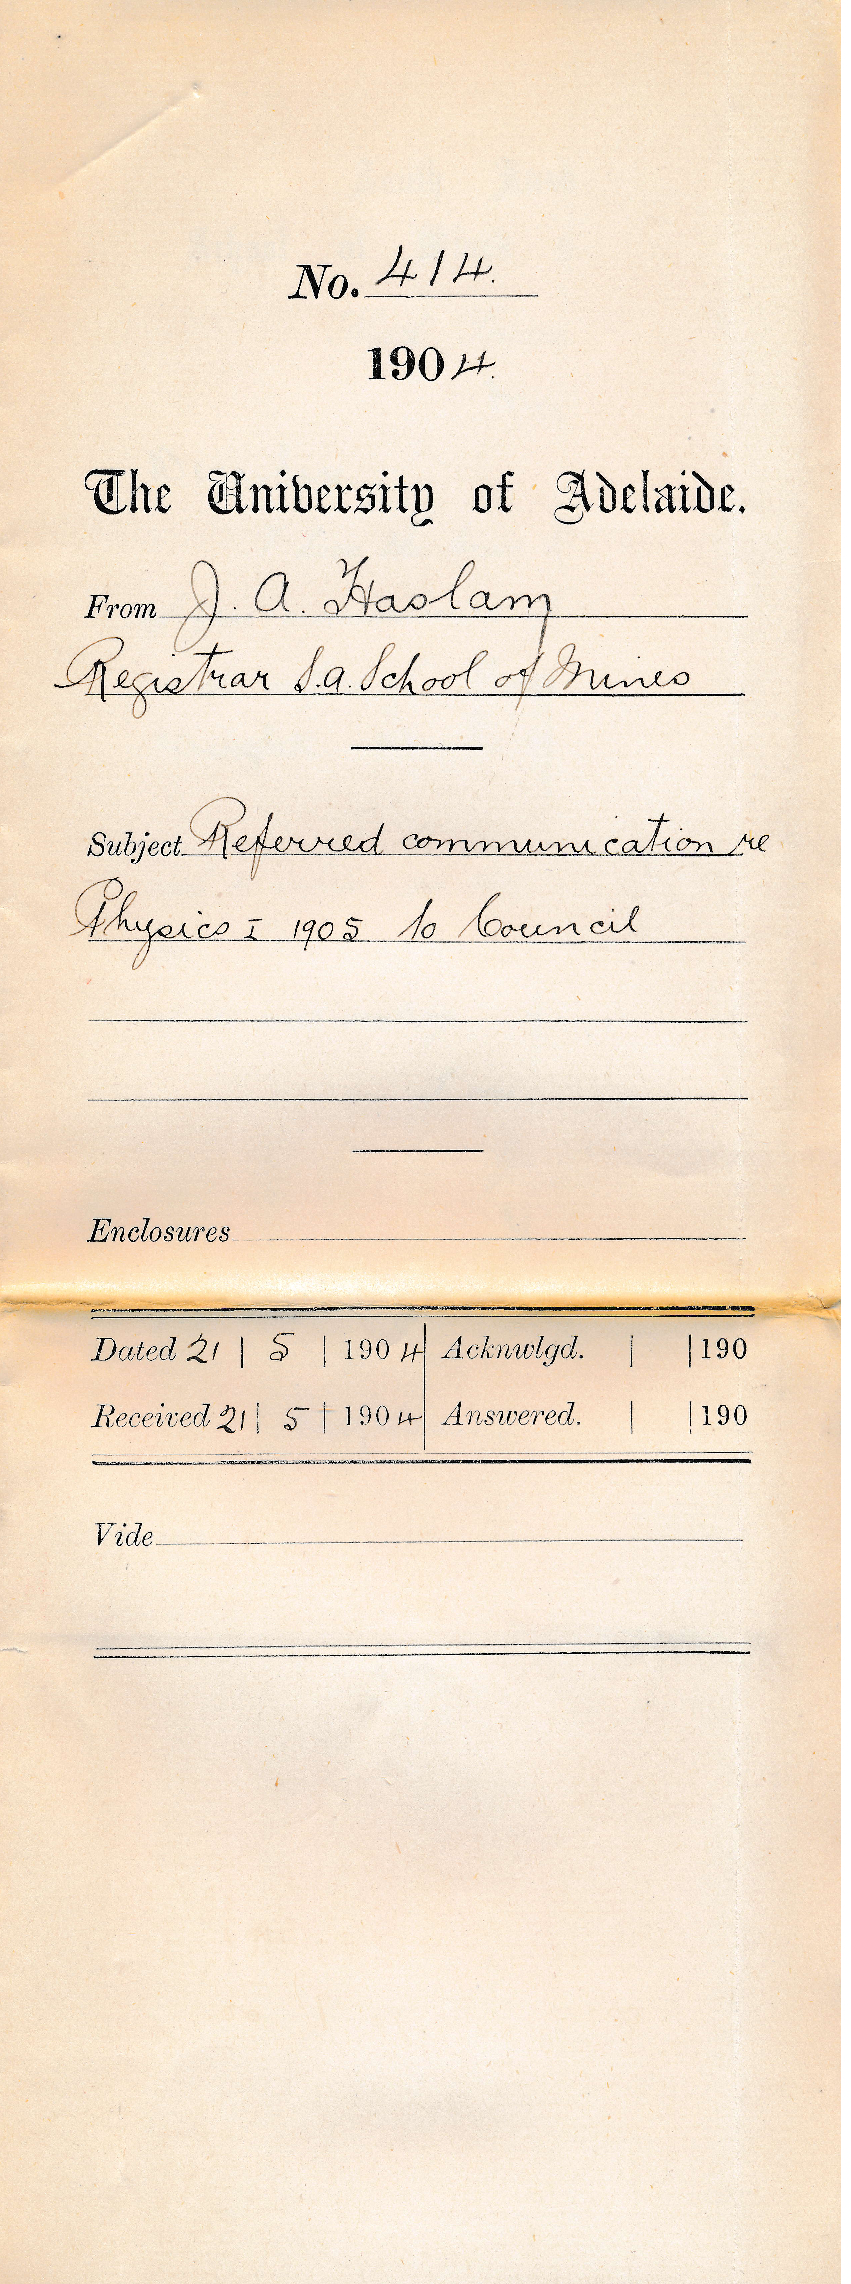 No. 414.
1904.
The University of Adelaide.
From J. A. Haslam
Registrar S.A. School of Mines
Subject Referred communication re
Physics I 1905 to Council
Enclosures
Dated 21 | 5 | 1904 Acknwlgd. | | 190
Received 21 | 5 | 1904 Answered. | | 190
Vide